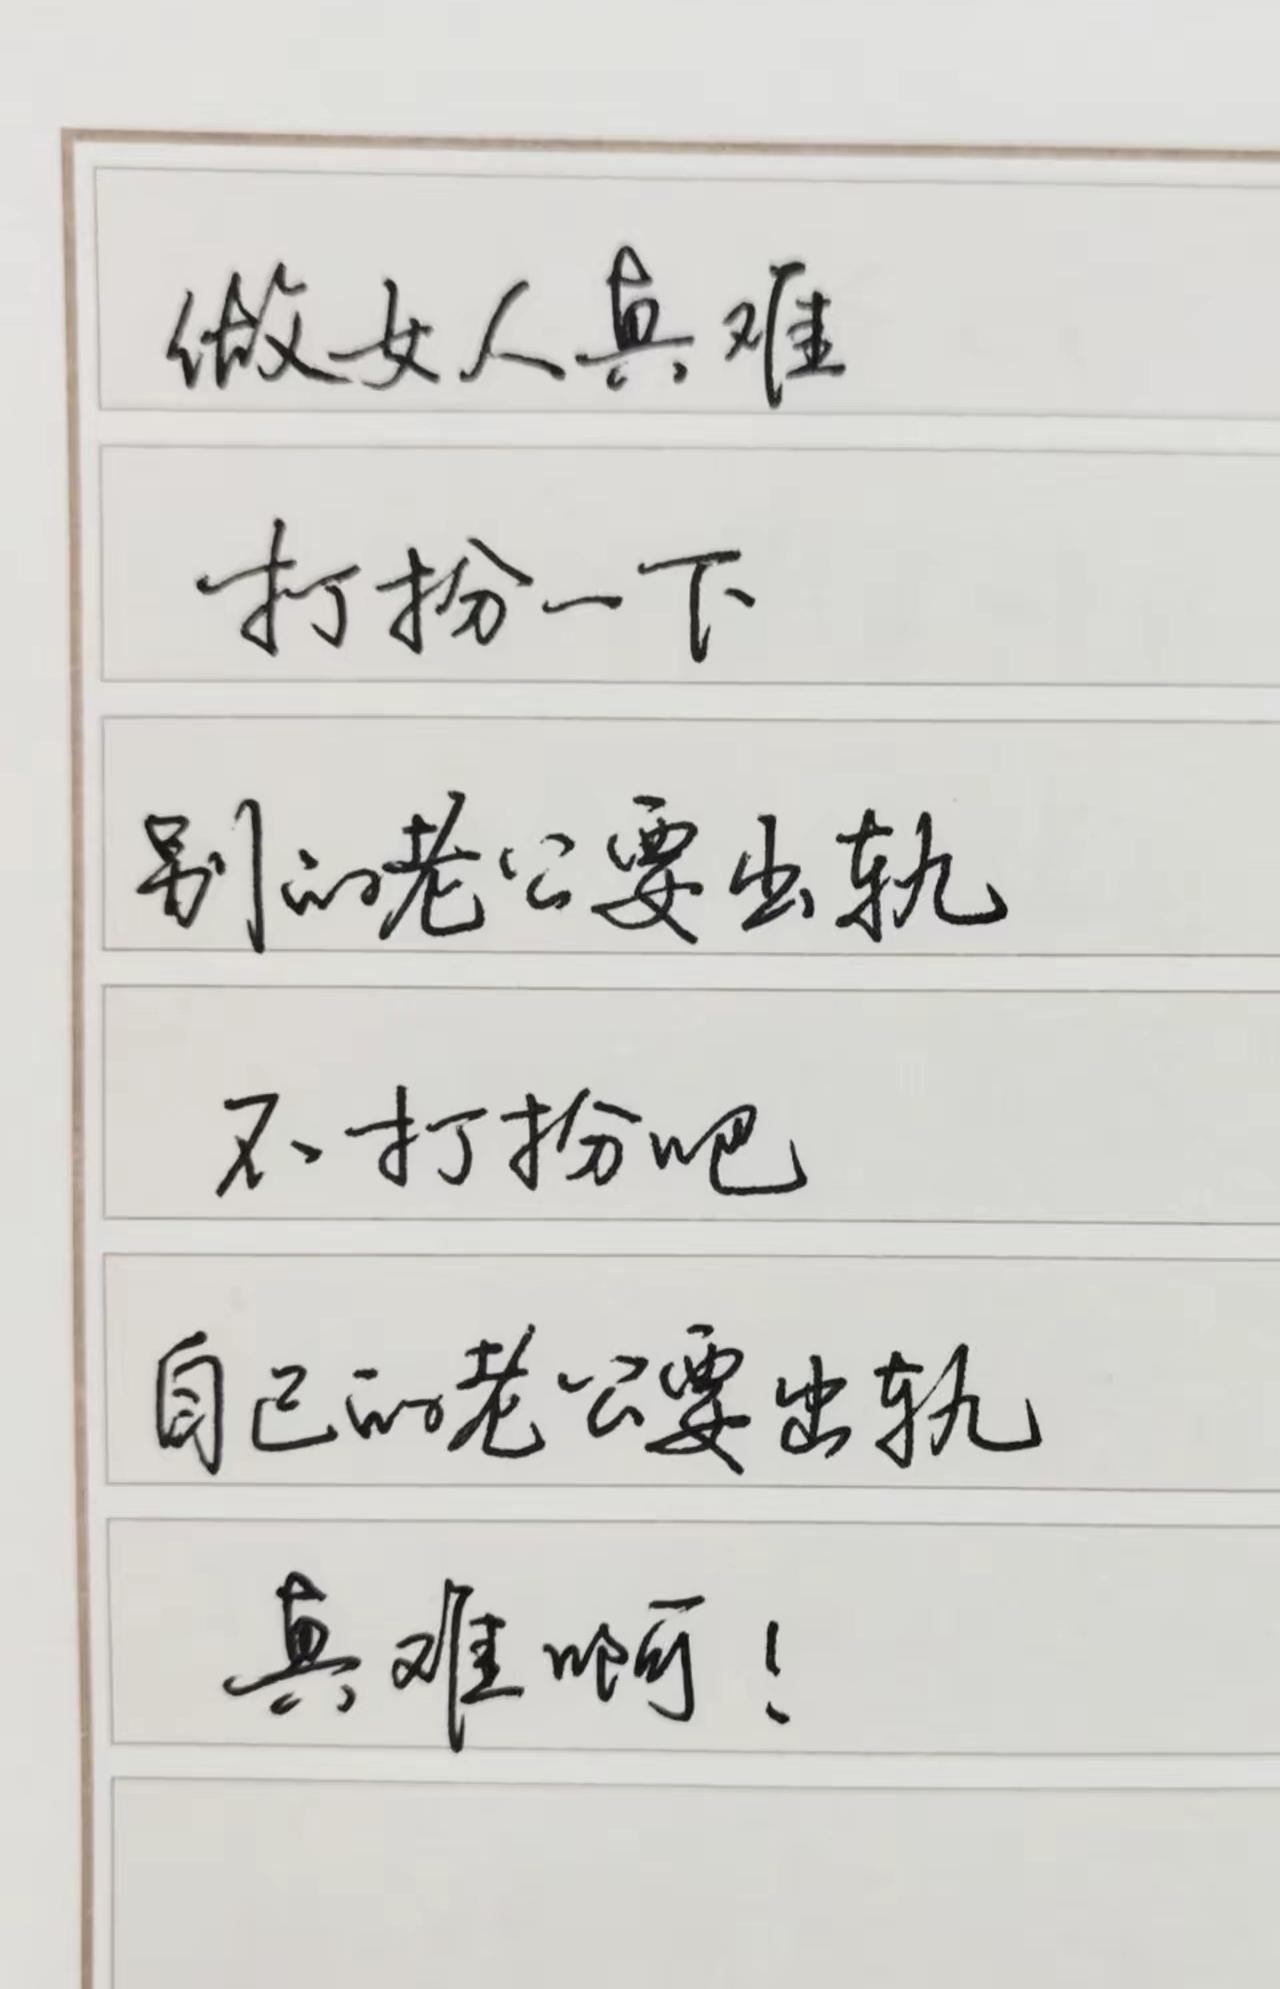 做女人真难
打扮一下
别的老公要出轨
不打扮吧
自己的老公要出轨
真难啊！